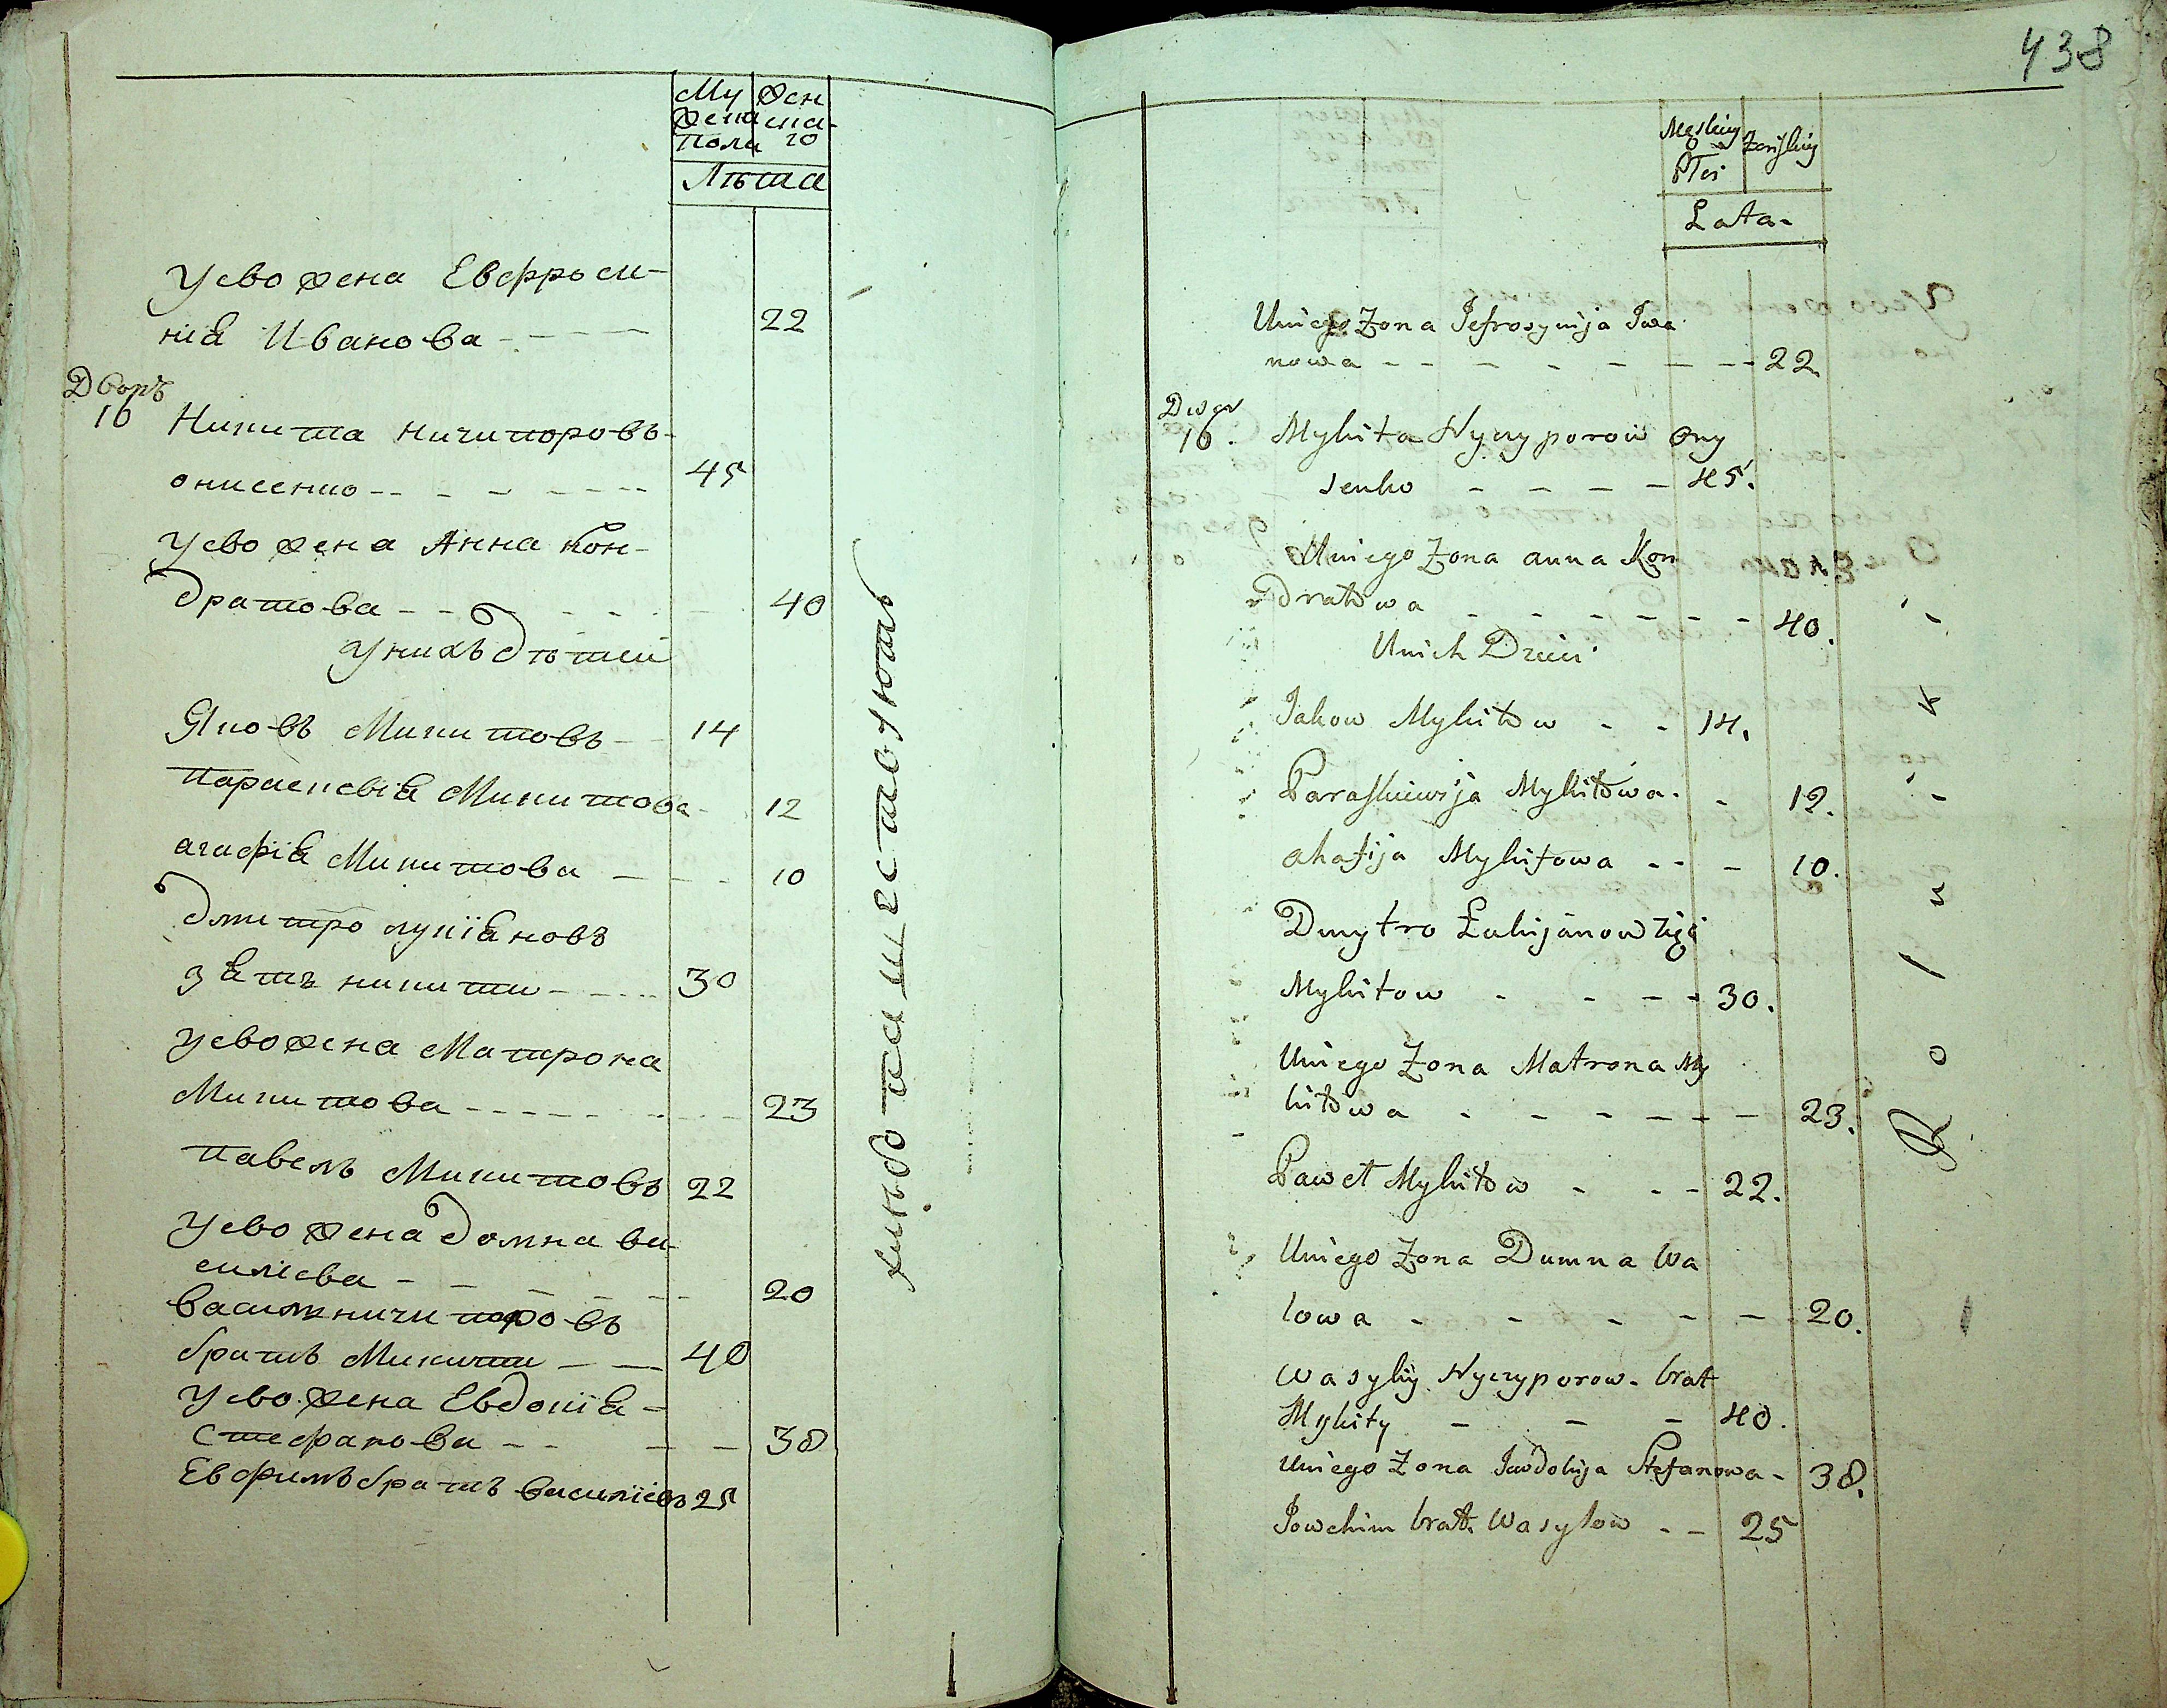 Му Жен
жена ска-
пола го
Лѣта
Усво жена Евфроси-
ніа Иванова
22
Дворъ
16 Никита ничипоровъ
онисенко
45
Усво жена Анна кон-
дратова
40
Унихъ дѣтей
Яковъ Микитовъ 14
Параскевіа Микитова 12
агафіа Микитова 10
дмитро лукіановъ
зать никити 30
Усво жена Матрона
Микитова 23
Павелъ Микитовъ 22
Усво жена домна ва
силіева
20
Василъ ничипоровъ
братъ Микити 40
Усво жена Евдокіа
Стефанова 38
Евфимъ братъ василіевъ 25
хлѣбопашествуютъ
438
Męskiey
Płci
Zenskiey
Lata
Uniego Zona Jefrosynija Iwa
nowa 22
Dwor
16. Mykita Nyczyporow Ony
senko 45.
Uniego Zona anna Kon
dratowa 40.
Unich Dzieci
Jakow Mykitow 14.
Paraskiewija Mykitowa 12.
ahafija Mykitowa 10.
Dmytro Łukijanow Zięć
Mykitow 30.
Uniego Zona Matrona My
kitowa 23.
Paweł Mykitow 22.
Uniego Zona Dumna Wa
lowa 20.
Wasylij Nyczyporow brat
Mykity 40.
Uniego Zona Jawdokija Stefanowa 38.
Jowchim brat Wasylow 25